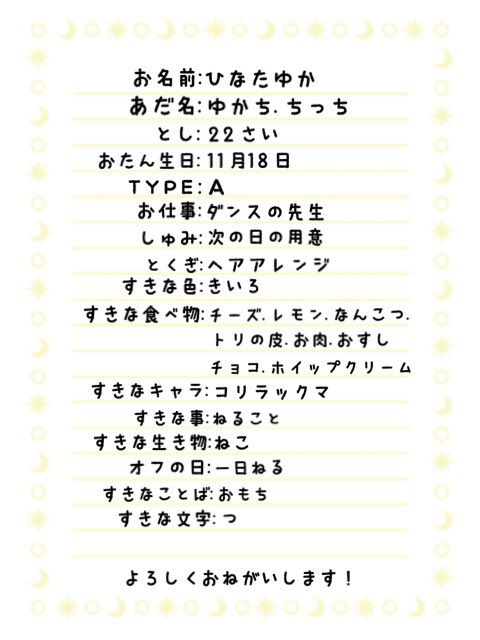 お名前:ひなたゆか
あだ名:ゆかち.ちっち
とし:22さい
おたん生日:11月18日
TYPE:A
お仕事:ダンスの先生
しゅみ:次の日の用意
とくぎ:ヘアアレンジ
すきな色:きいろ
すきな食べ物:チーズ.レモン.なんこつ.
トリの皮.お肉.おすし
チョコ.ホイップクリーム
すきなキャラ:コリラックマ
すきな事:ねること
すきな生き物:ねこ
オフの日:一日ねる
すきなことば:おもち
すきな文字:つ
よろしくおねがいします!